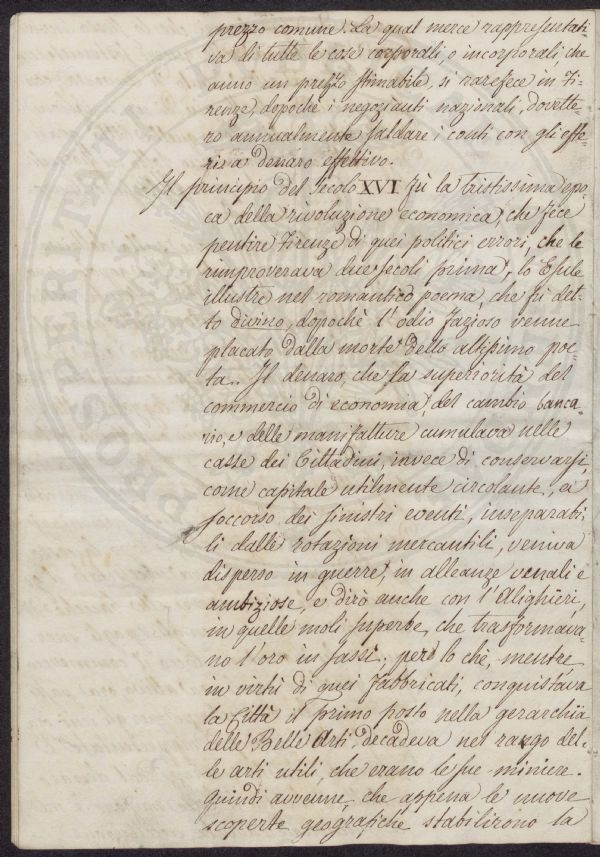 prezzo comune. La qual merce rappresentati-
va di tutte le cose corporali, o incorporali, che
anno un prezzo stimabile, si rarefece in Fi-
renze, dopoche i negozianti nazionali, dovette-
ro annualmente saldare i conti con gli este-
ri a denaro effettivo.
Il principio del secolo XVI fù la tristissima epo-
ca della rivoluzione economica, che fece
pentire Firenze di quei politici errori, che le
rimproverava due secoli prima, lo Esule
illustre nel romantico poema, che fù det-
to divino, dopochè l'odio fazioso venne
placato dalla morte dello altissimo poe-
ta.. Il denaro, che la superiorità del
commercio di economia, del cambio banca-
rio, e delle manifatture cumulava nelle
casse dei Cittadini, invece di conservarsi,
come capitale utilmente circolante, a
soccorso dei sinistri eventi, inseparabi-
li dalle rotazioni mercantili, veniva
disperso in guerre, in alleanze venali e
ambiziose, e dirò anche con l'Alighieri,
in quelle moli superbe, che trasformava-
no l'oro in sassi; però lo chè, mentre,
in virtù di quei fabbricati, conquistava
la Città il primo posto nella gerarchia
delle Belle Arti, decadeva nel rango del-
le arti utili, che erano le sue miniere.
Quindi avvenne, che appena le nuove
scoperte geografiche stabilirono la